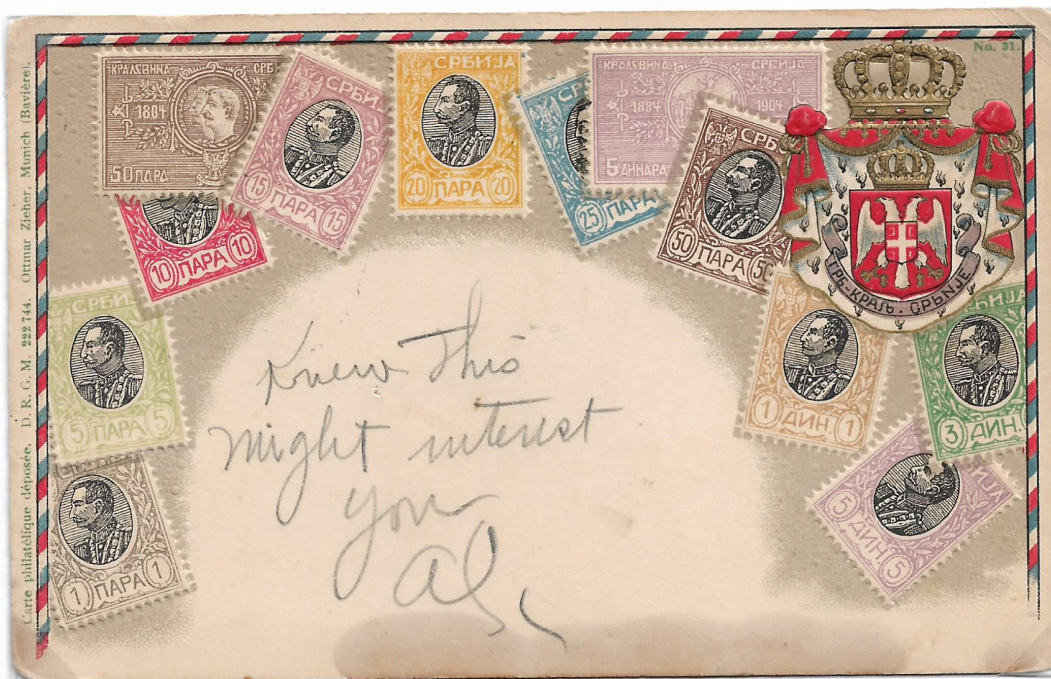 No. 31.
Carte philatélique déposée. D. R. G. M. 222 744. Ottmar Zieher, Munich (Bavière).
КРАЉЕВИНА СРБ
1884
50 ПАРА
СРБИ
15 ПАРА 15
СРБИЈА
20 ПАРА 20
СР
25 ПАРА
КРАЉЕВИНА СРБИЈА
1884 1904
5 ДИНАРА
СРБ
50 ПАРА 50
ГРБ·КРАЉ·СРБИЈЕ
10 ПАРА 10
СРБИЈА
5 ПАРА 5
1 ПАРА 1
1 ДИН. 1
ИЈА
3 ДИН.
ИЈА
5 ДИН. 5
Knew this
might interest
you
Al,